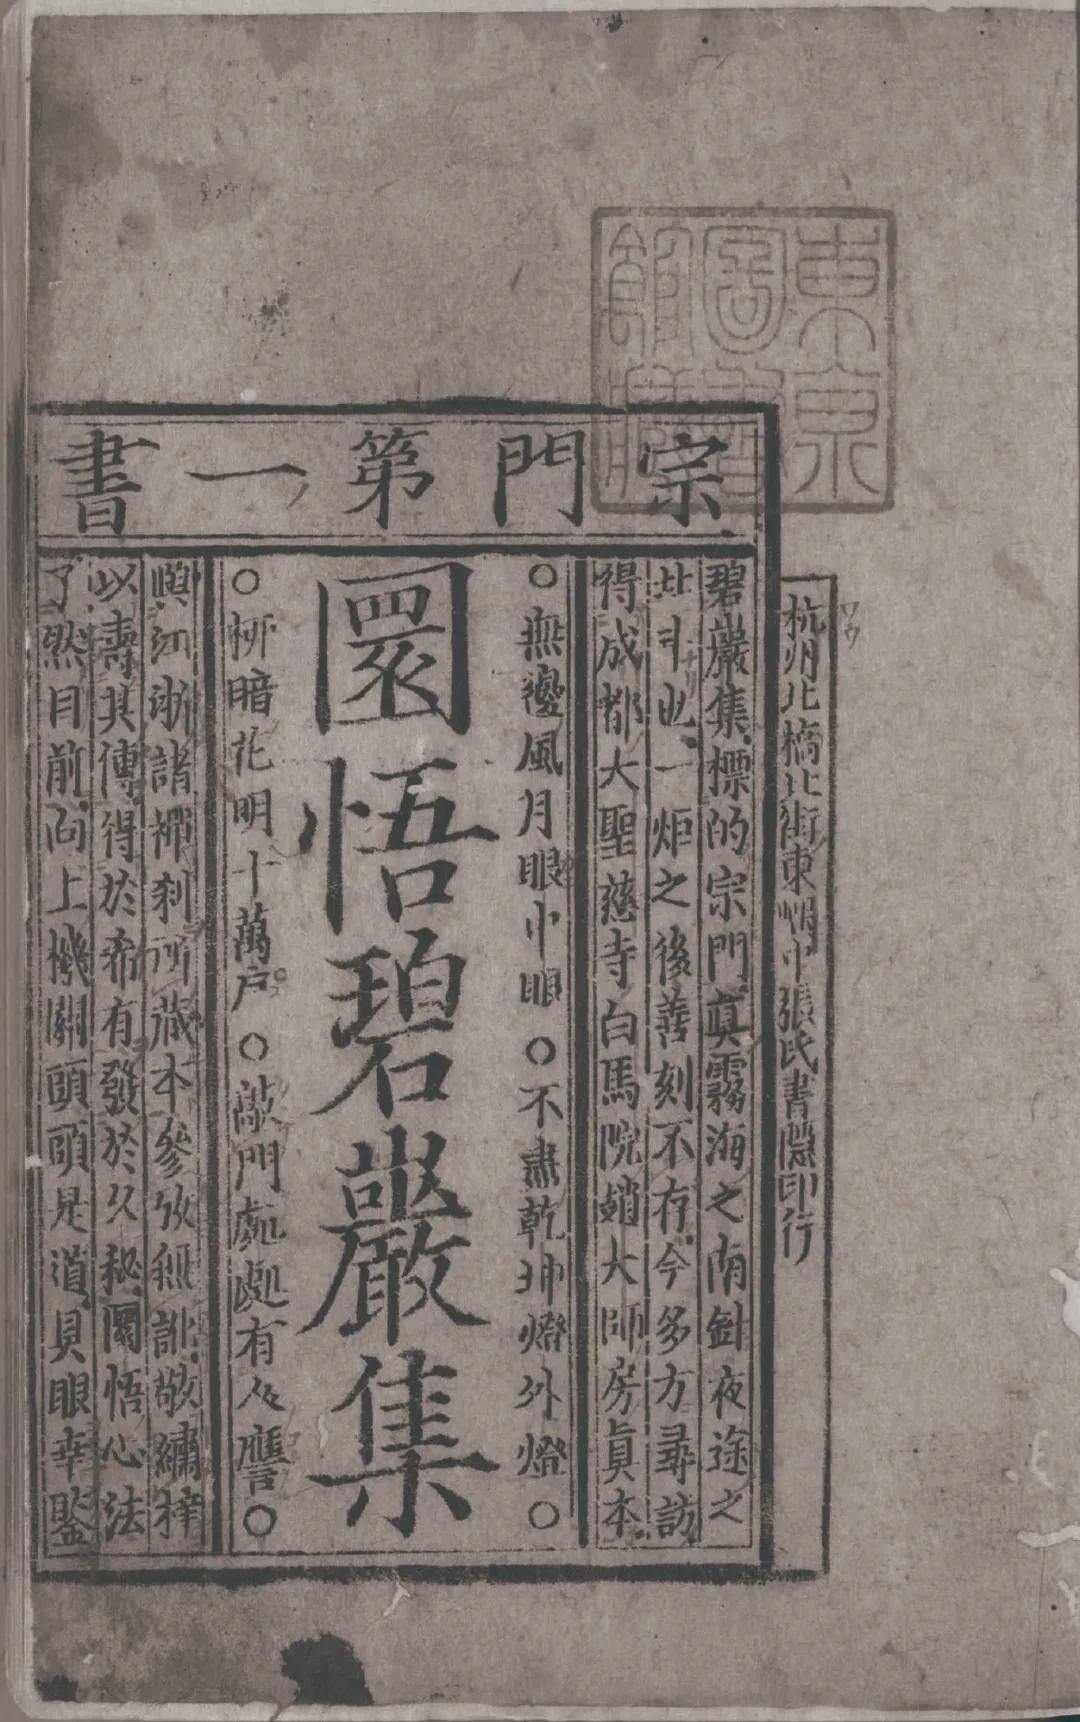 東京
圖書
館藏
杭州北橋北街東嵎中張氏書隱印行
宗門第一書
碧巖集標的宗門眞霧海之南針夜途之
北斗也一炬之後善刻不存今多方尋訪
得成都大聖慈寺白馬院趙大師房眞本
○無邊風月眼中眼○不盡乾坤燈外燈○
圜悟碧巖集
○栁暗花明十萬戶○敲門處處有人譍○
與江浙諸禪刹所藏本參攷無訛敬繡梓
以壽其傳得於希有發於久秘圜悟心法
了然目前向上機關頭頭是道具眼幸鑒